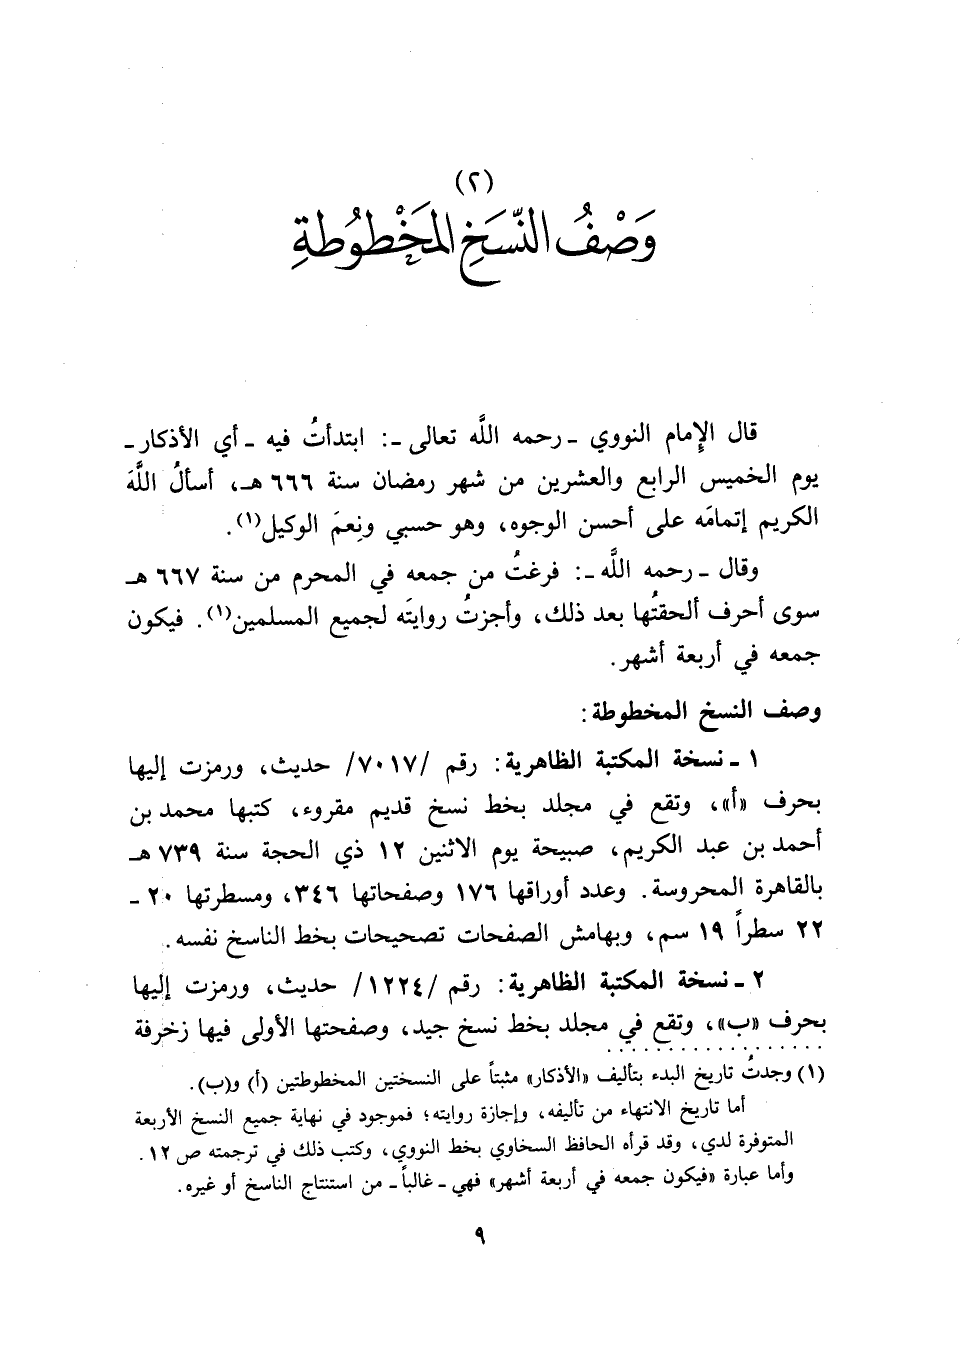 (٢)
وَصْفُ النّسَخِ المَخْطوُطةِ
قال الإمام النووي ـ رحمه اللَّه تعالى ـ: ابتدأتُ فيه ـ أي الأذكار ـ
يوم الخميس الرابع والعشرين من شهر رمضان سنة ٦٦٦ هـ، أسألُ اللَّهَ
الكريم إتمامَه على أحسن الوجوه، وهو حسبي ونِعمَ الوكيل(١).
وقال ـ رحمه اللَّه ـ: فرغتُ من جمعه في المحرم من سنة ٦٦٧ هـ
سوى أحرف ألحقتُها بعد ذلك، وأجزتُ روايتَه لجميع المسلمين(١). فيكون
جمعه في أربعة أشهر.
وصف النسخ المخطوطة:
١ ـ نسخة المكتبة الظاهرية: رقم /٧٠١٧/ حديث، ورمزت إليها
بحرف «أ»، وتقع في مجلد بخط نسخ قديم مقروء، كتبها محمد بن
أحمد بن عبد الكريم، صبيحة يوم الاثنين ١٢ ذي الحجة سنة ٧٣٩ هـ
بالقاهرة المحروسة. وعدد أوراقها ١٧٦ وصفحاتها ٣٤٦، ومسطرتها ٢٠ ـ
٢٢ سطراً ١٩ سم، وبهامش الصفحات تصحيحات بخط الناسخ نفسه.
٢ ـ نسخة المكتبة الظاهرية: رقم /١٢٢٤/ حديث، ورمزت إليها
بحرف «ب»، وتقع في مجلد بخط نسخ جيد، وصفحتها الأولى فيها زخرفة
(١) وجدتُ تاريخ البدء بتأليف «الأذكار» مثبتاً على النسختين المخطوطتين (أ) و(ب).
أما تاريخ الانتهاء من تأليفه، وإجازة روايته؛ فموجود في نهاية جميع النسخ الأربعة
المتوفرة لدي، وقد قرأه الحافظ السخاوي بخط النووي، وكتب ذلك في ترجمته ص ١٢.
وأما عبارة «فيكون جمعه في أربعة أشهر» فهي ـ غالباً ـ من استنتاج الناسخ أو غيره.
٩